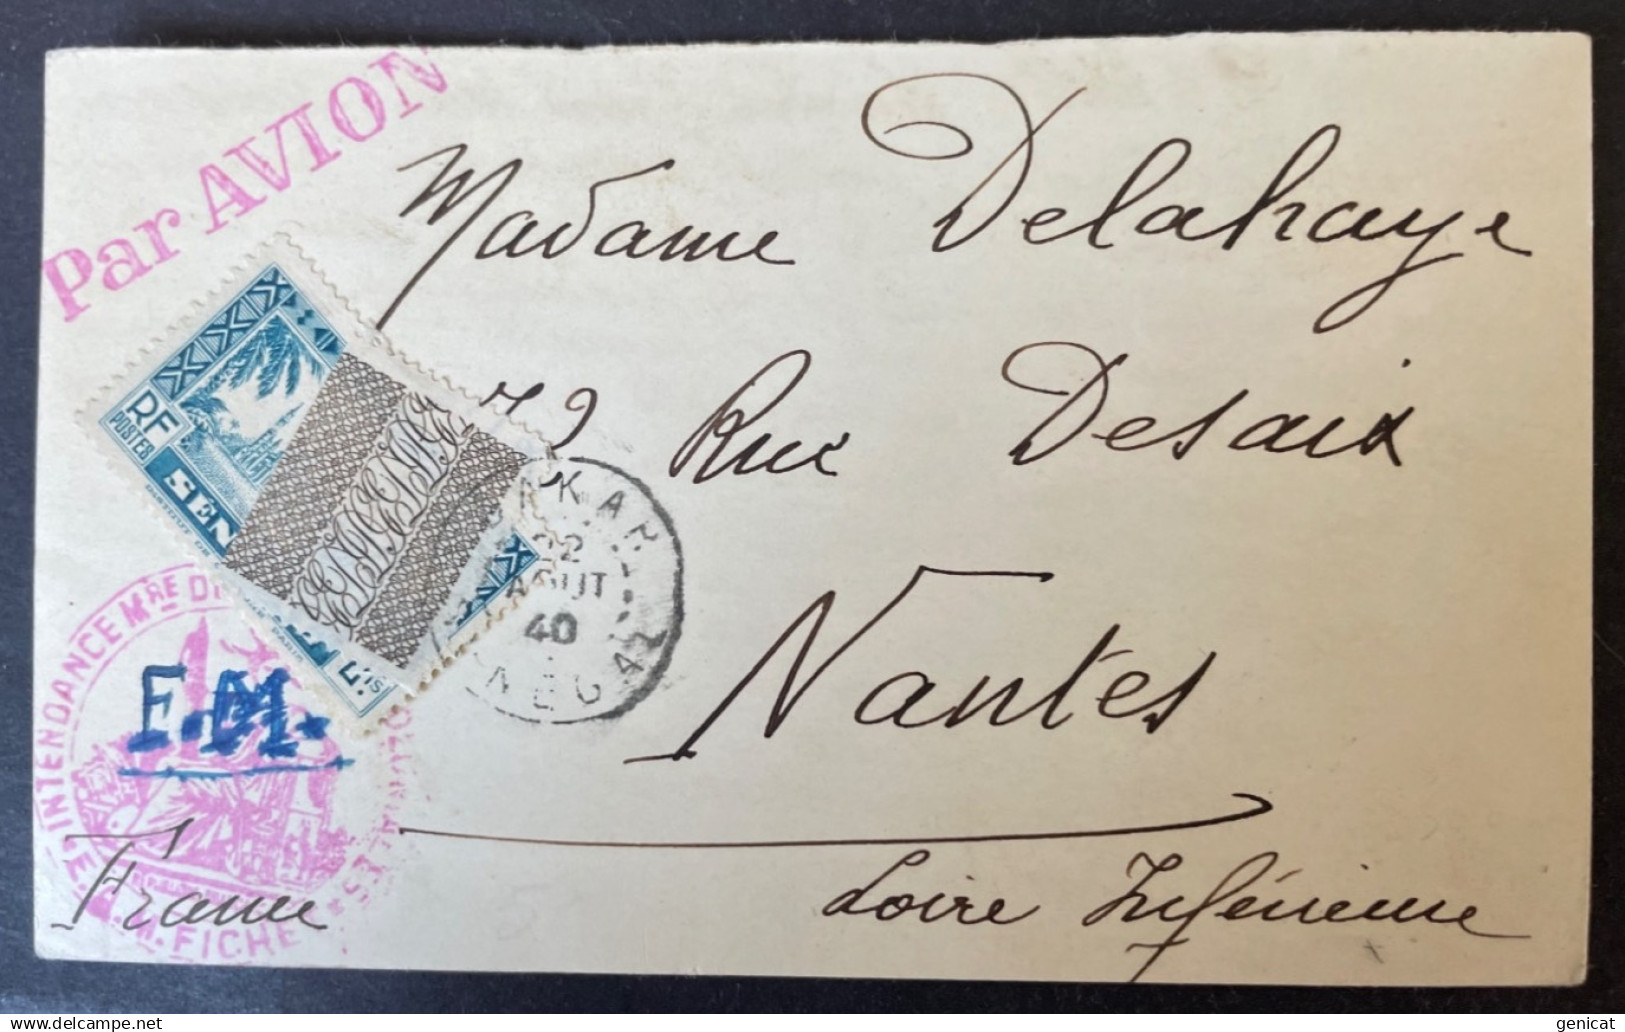 Par AVION
Madame Delahaye
72 Rue Desaix
Nantes
Loire Inférieure
France
F.M.
RF
POSTES
SÉN
DAKAR
22
AOUT
40
SENEGAL
INTENDANCE MRE DU
FICHE
genicat
www.delcampe.net